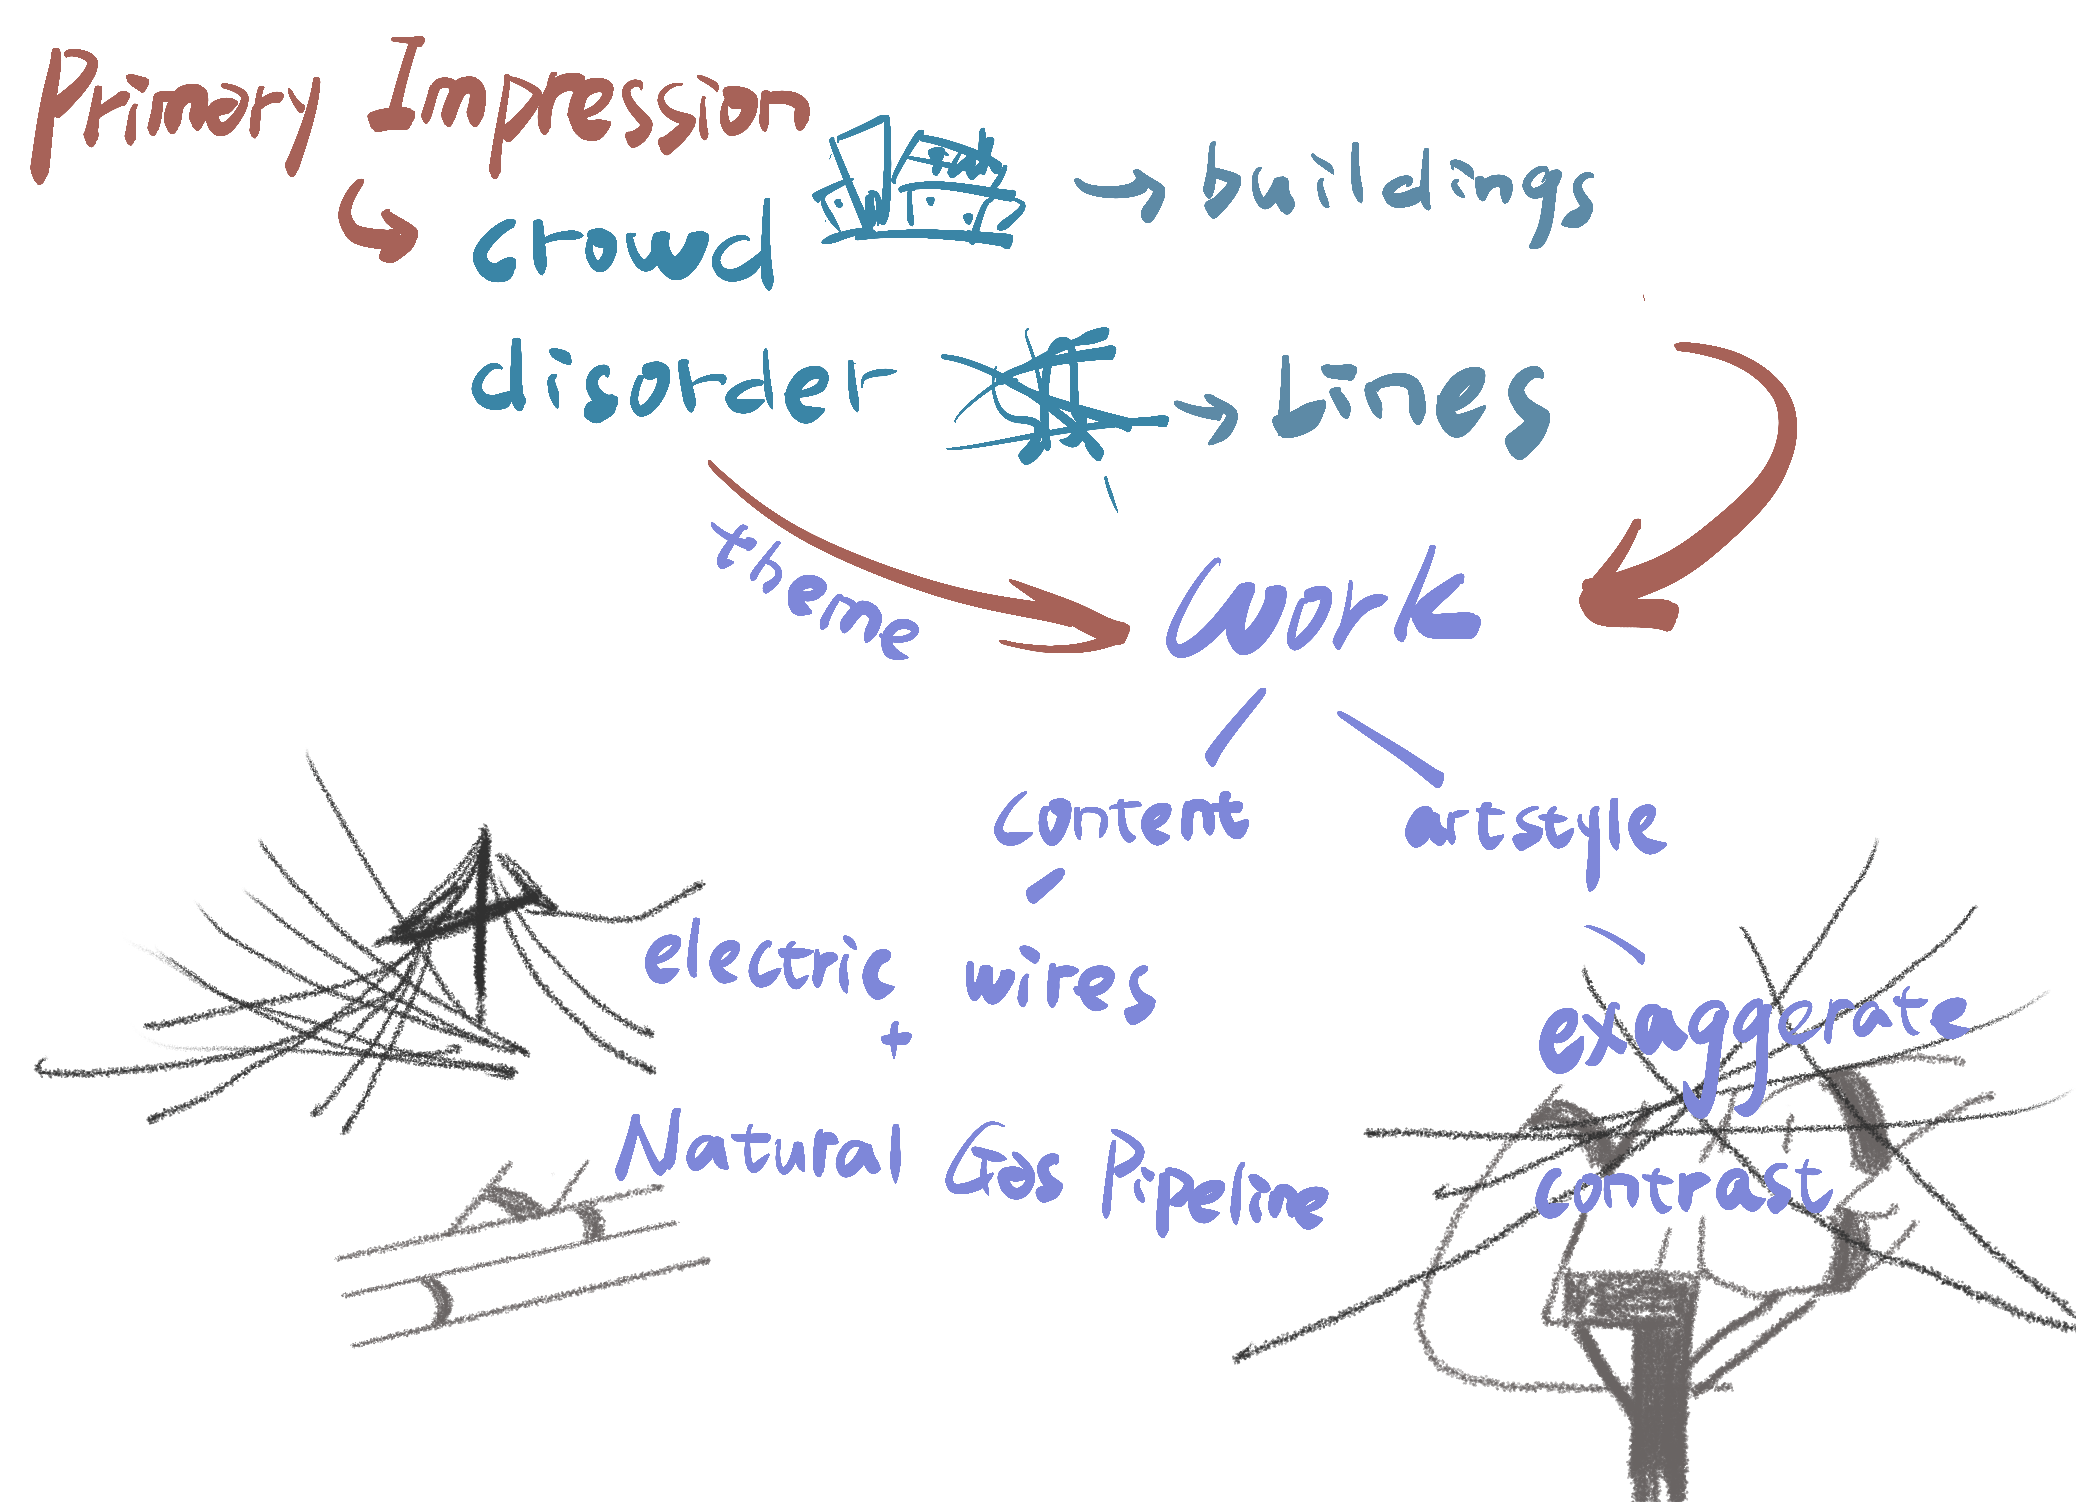 Primary Impression
crowd → buildings
disorder → Lines
theme
work
content artstyle
electric wires
+
Natural Gas Pipeline
exaggerate
contrast